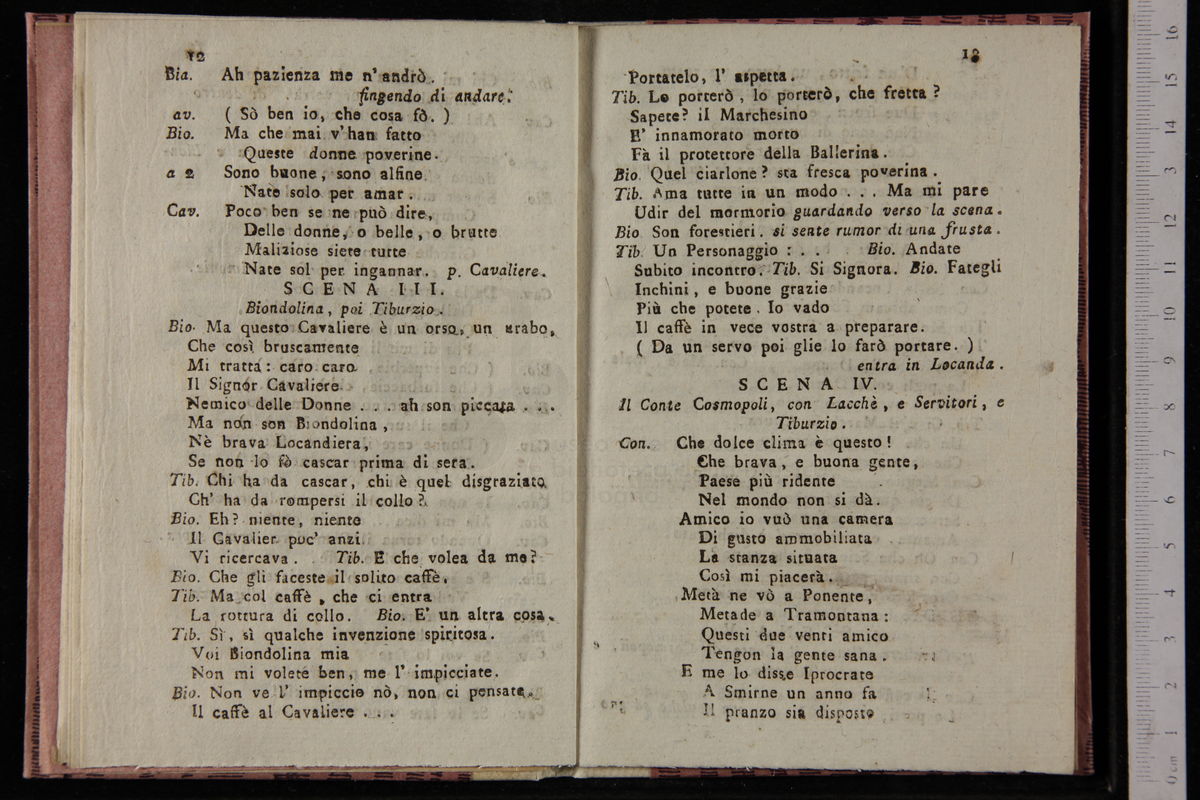 12
Bia. Ah pazienza me n' andrò.
fingendo di andare.
av. ( Sò ben io, che cosa fò. )
Bio. Ma che mai v' han fatto
Queste donne poverine.
a 2 Sono buone, sono alfine
Nate solo per amar.
Cav. Poco ben se ne può dire,
Delle donne, o belle, o brutte
Maliziose siete tutte
Nate sol per ingannar. p. Cavaliere.
SCENA III.
Biondolina, poi Tiburzio.
Bio. Ma questo Cavaliere è un orso, un arabo,
Che così bruscamente
Mi tratta: caro caro
Il Signor Cavaliere
Nemico delle Donne . . . ah son piccata . . .
Ma non son Biondolina,
Nè brava Locandiera,
Se non lo fò cascar prima di sera.
Tib. Chi ha da cascar, chi è quel disgraziato
Ch' ha da rompersi il collo?
Bio. Eh? niente, niente
Il Cavalier poc' anzi
Vi ricercava. Tib. E che volea da me?
Bio. Che gli faceste il solito caffè.
Tib. Ma col caffè, che ci entra
La rottura di collo. Bio. E' un altra cosa.
Tib. Sì, sì qualche invenzione spiritosa.
Voi Biondolina mia
Non mi volete ben, me l' impicciate.
Bio. Non ve l' impiccio nò, non ci pensate.
Il caffè al Cavaliere . . .
13
Portatelo, l' aspetta.
Tib. Lo porterò, lo porterò, che fretta?
Sapete? il Marchesino
E' innamorato morto
Fà il protettore della Ballerina.
Bio. Quel ciarlone? sta fresca poverina.
Tib. Ama tutte in un modo . . . Ma mi pare
Udir del mormorio guardando verso la scena.
Bio Son forestieri. si sente rumor di una frusta.
Tib. Un Personaggio : . . Bio. Andate
Subito incontro. Tib. Si Signora. Bio. Fategli
Inchini, e buone grazie
Più che potete. Io vado
Il caffè in vece vostra a preparare.
( Da un servo poi glie lo farò portare. )
entra in Locanda.
SCENA IV.
Il Conte Cosmopoli, con Lacchè, e Servitori, e
Tiburzio.
Con. Che dolce clima è questo!
Che brava, e buona gente,
Paese più ridente
Nel mondo non si dà.
Amico io vuò una camera
Di gusto ammobiliata
La stanza situata
Così mi piacerà.
Metà ne vò a Ponente,
Metade a Tramontana:
Questi due venti amico
Tengon la gente sana.
E me lo disse Iprocrate
A Smirne un anno fa
Il pranzo sia disposto